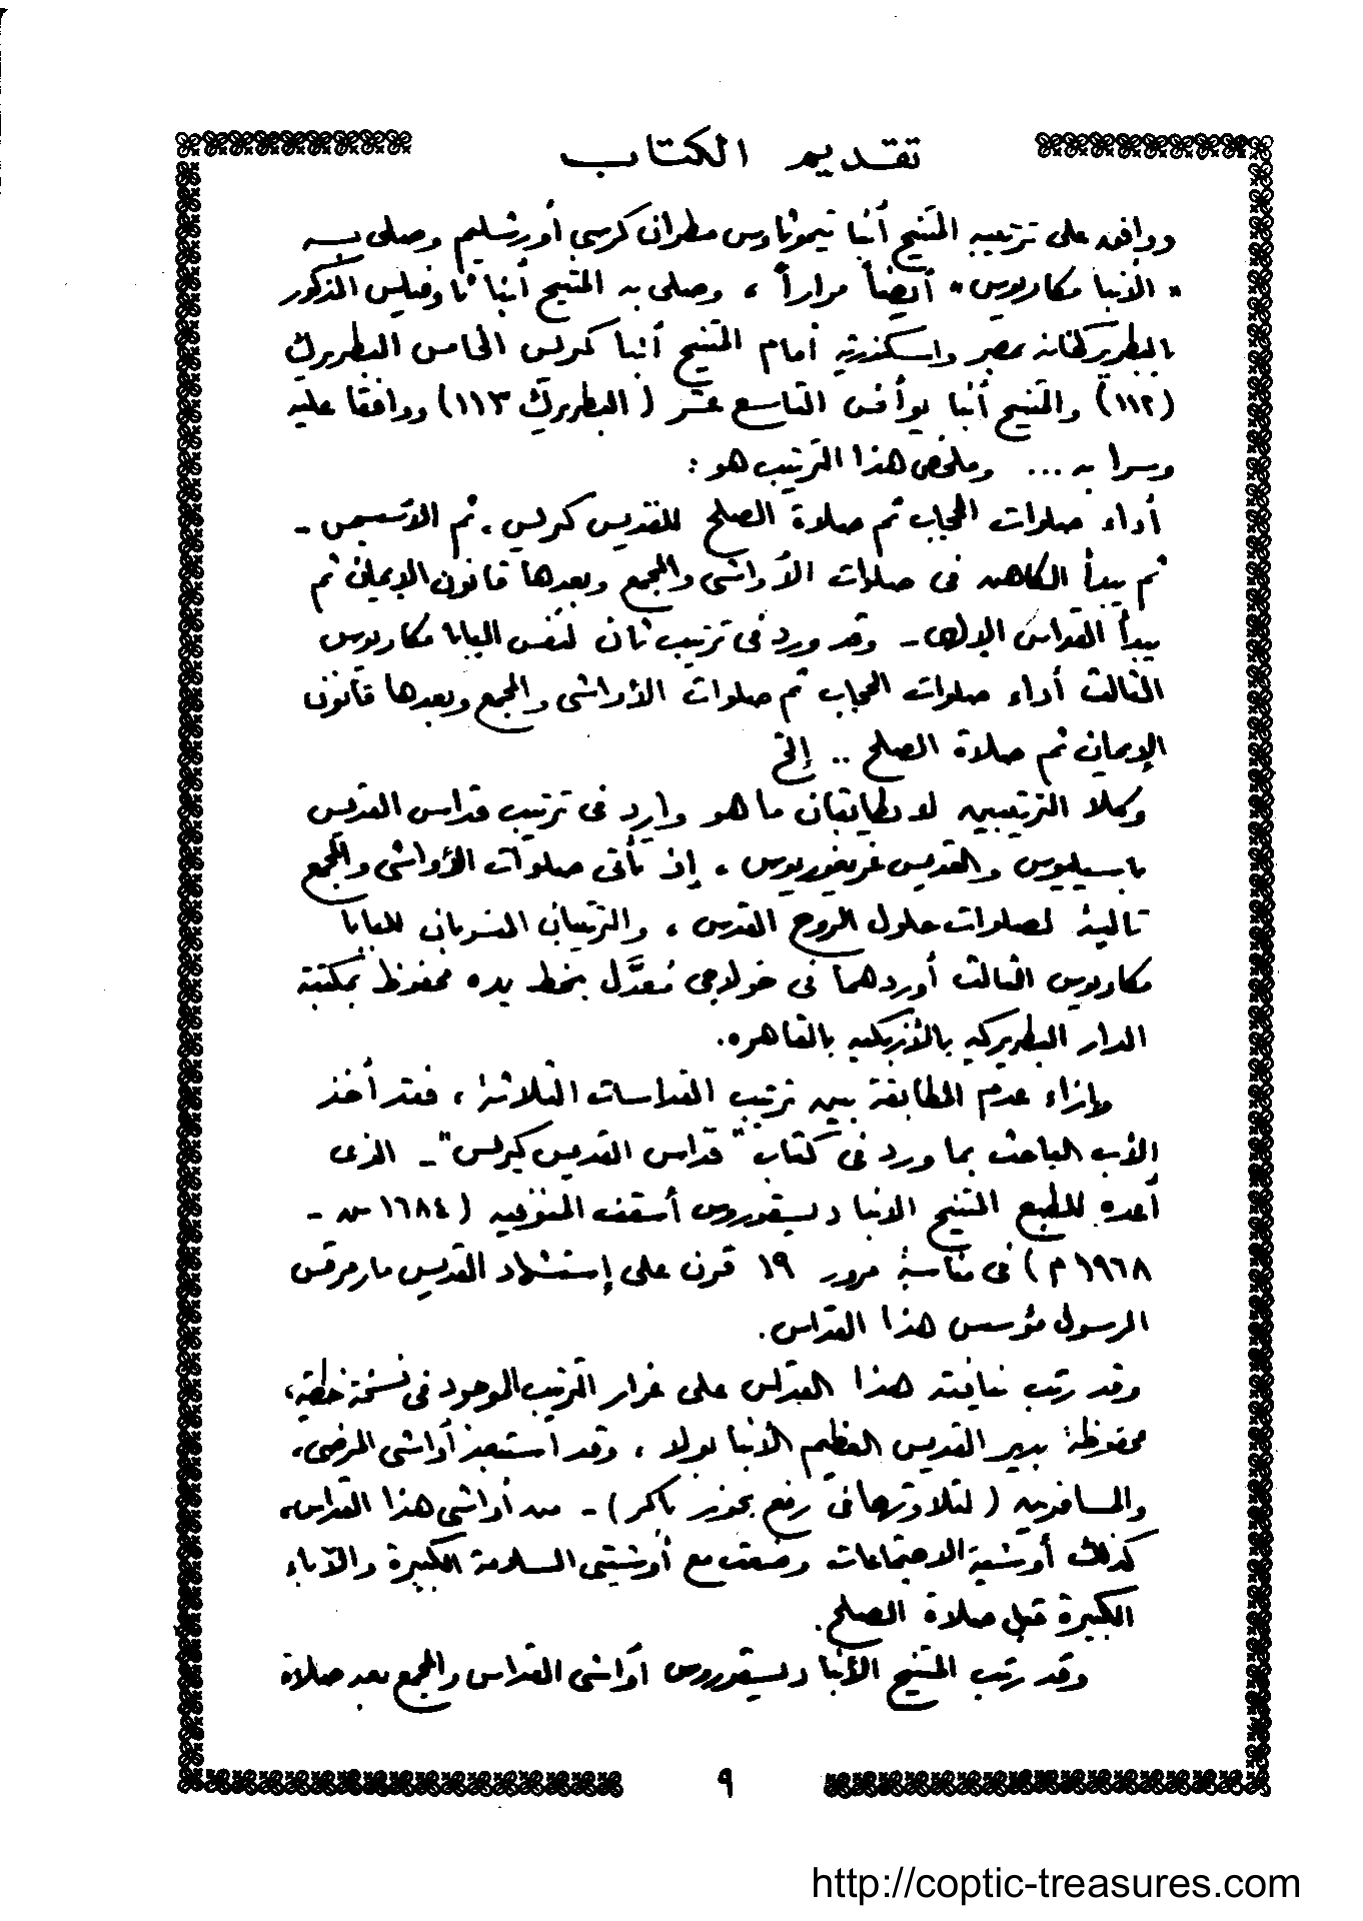 تقديم الكتاب
ووافق على ترتيبه المتنيح أنبا تيموثاوس مطران كرسي أورشليم وصلى به
" الأنبا مكاريوس " أيضاً مراراً ، وصلى به المتنيح أنبا ثاوفيلس المذكور
بالبطريركخانه بمصر واسكندرية أمام المتنيح أنبا كيرلس الخامس البطريرك
(١١٢) والمتنيح أنبا يوأنس التاسع عشر (البطريرك ١١٣) ووافقا عليه
وسرا به ... وملخص هذا الترتيب هو :
أداء صلوات الحجاب ثم صلاة الصلح للقديس كيرلس ، ثم الأسبسمس -
ثم يبدأ الكاهن فى صلوات الأواشى والمجمع وبعدها قانون الإيمان ثم
يبدأ القداس الإلهى - وقد ورد فى ترتيب ثان لنفس البابا مكاريوس
الثالث أداء صلوات الحجاب ثم صلوات الأواشى والمجمع وبعدها قانون
الإيمان ثم صلاة الصلح .. إلخ
وكلا الترتيبين لا يطابقان ما هو وارد فى ترتيب قداس القديس
باسيليوس والقديس غريغوريوس ، إذ تأتى صلوات الأواشى والمجمع
تالية لصلوات حلول الروح القدس ، والترتيبان المنسوبان للبابا
مكاريوس الثالث أوردهما فى خولاجى مُعدَّل بخط يده محفوظ بمكتبة
الدار البطريركيه بالأزبكيه بالقاهره.
وإزاء عدم المطابقة بين ترتيب القداسات الثلاثة ، فقد أخذ
الأب الباحث بما ورد فى كتاب "قداس القديس كيرلس" - الذى
أعده للطبع المتنيح الانبا ديسقوروس أسقف المنوفيه (١٦٨٤ ش -
١٩٦٨م) فى مناسبة مرور ١٩ قرن على إستشهاد القديس مارمرقس
الرسول مؤسس هذا القداس.
وقد رتب نيافته هذا القداس على غرار الترتيب الموجود فى نسخة خطية،
محفوظة بدير القديس العظيم الأنبا بولا ، وقد استبعد أواشى المرضى،
والمسافرين (لتلاوتها فى رفع بخور باكر) - من أواشى هذا القداس،
كذلك أوشية الاجتماعات وضعت مع أوشيتى السلامة الكبيرة والآباء
الكبيرة قبل صلاة الصلح.
وقد رتب المتنيح الأنبا ديسقوروس أواشى القداس والمجمع بعد صلاة
٩
http://coptic-treasures.com